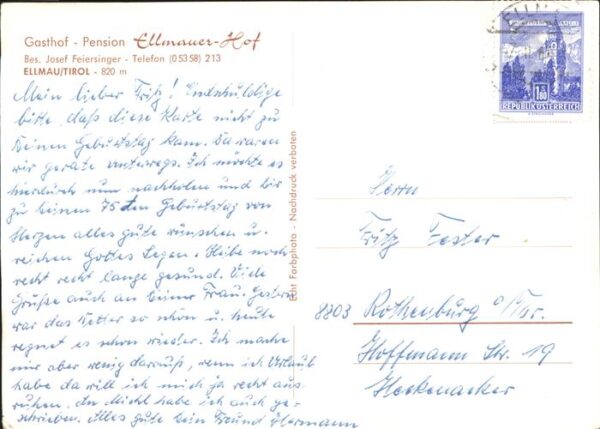 Gasthof - Pension Ellmauer-Hof
Bes. Josef Feiersinger - Telefon (0 53 58) 213
ELLMAU/TIROL - 820 m
Mein lieber Fritz! Entschuldige
bitte, daß diese Karte nicht zu
Deinen Geburtstag kam. Da waren
wir gerate unterwegs. Ich möchte es
hierdurch nun nachholen und Dir
zu Deinen 75ten Geburtstag von
Herzen alles gute wünschen u.
reichen Gottes Segen. Bleibe noch
recht recht lange gesund. Viele
Grüße auch an Deiner Frau. Gestern
war das Wetter so schön u. heute
regnet es schon wieder. Ich mache
mir aber wenig darauß, wenn ich Urlaub
habe da will ich mich ja recht aus-
ruhen. An Michl habe ich auch ge-
schrieben. Alles gute Dein Freund Hermann
Echt Farbphoto - Nachdruck verboten
ELLMAU
1.80
REPUBLIK ÖSTERREICH
Herrn
Fritz Fester
8803 Rothenburg o/Tbr.
Hoffmann Str. 19
Heckenacker